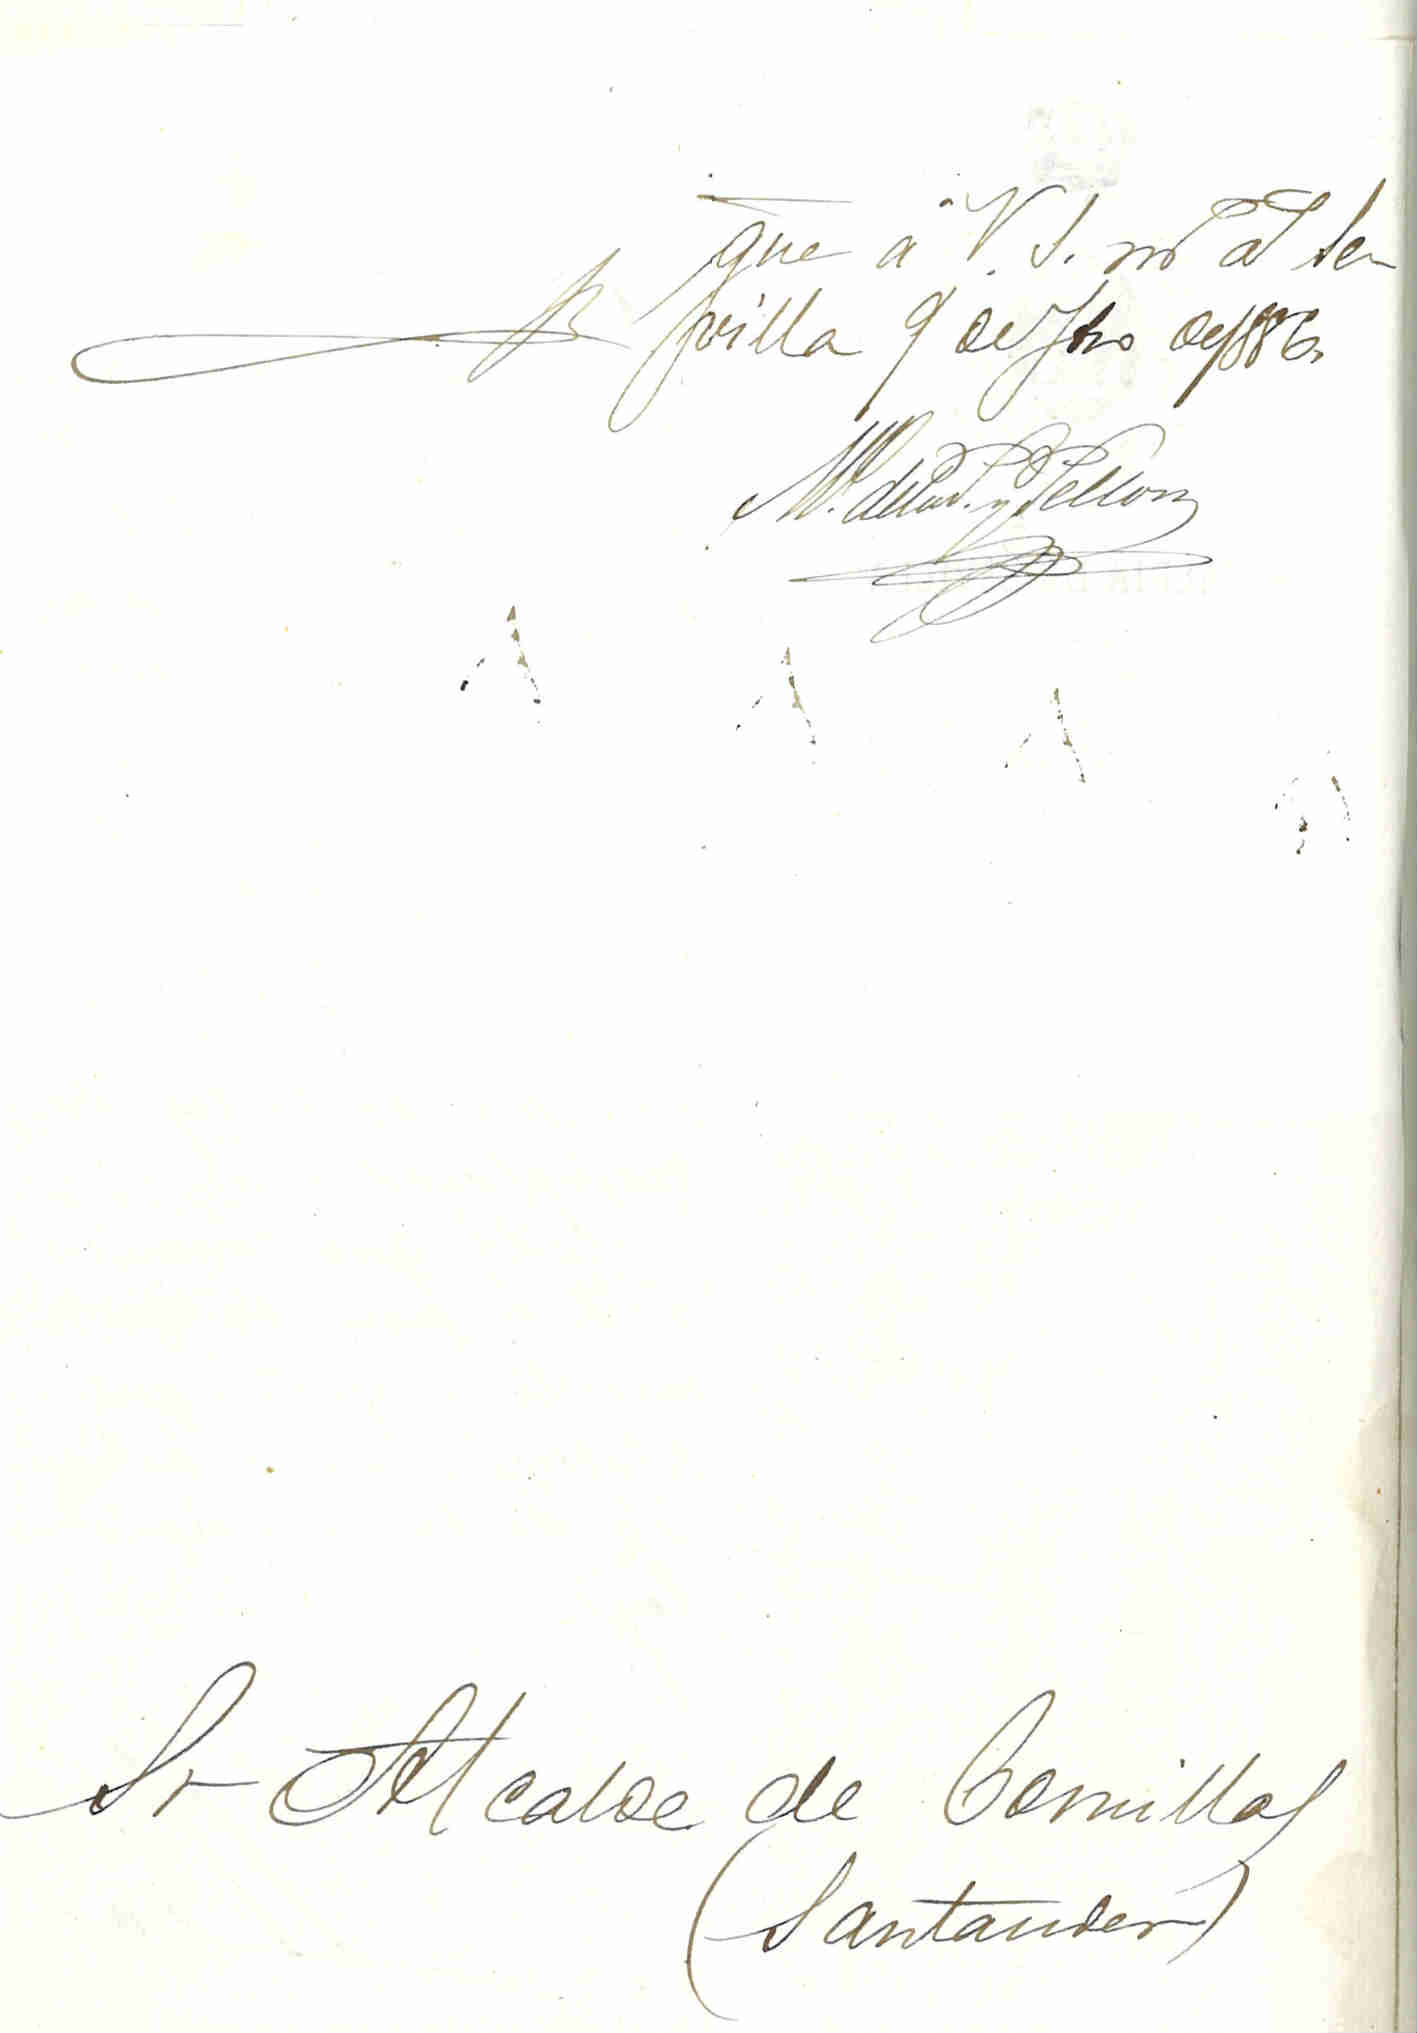 que á V. S. ms as Se-
villa 9 de de 1886.
M. de y Pellon
Sr Alcalde de Comillas
(Santander)